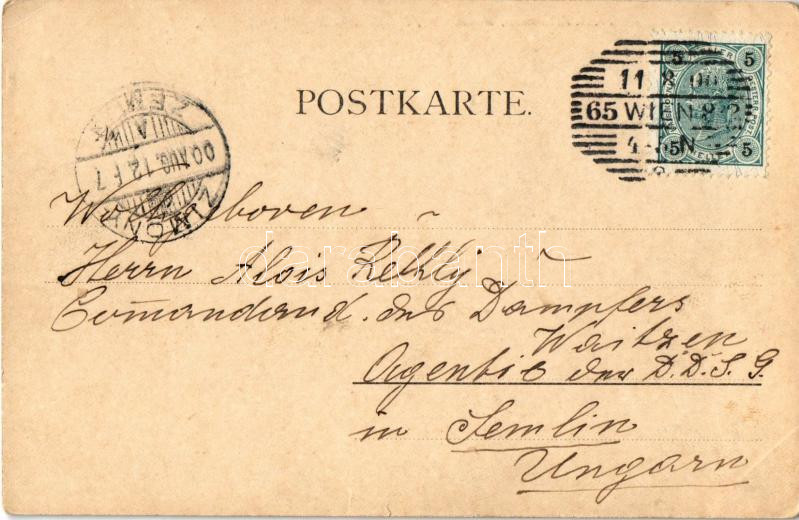 POSTKARTE.
11 8 00
65 WIEN 8/2
5
5
5
5
00 AUG. 12 F. 7
ZIMONY
Wohlgeboren
Herrn Alois Rethly
Com̄andand. des Dampfers
Waitzen
Agentie der D.D.S.G.
in Semlin
Ungarn
darabanth